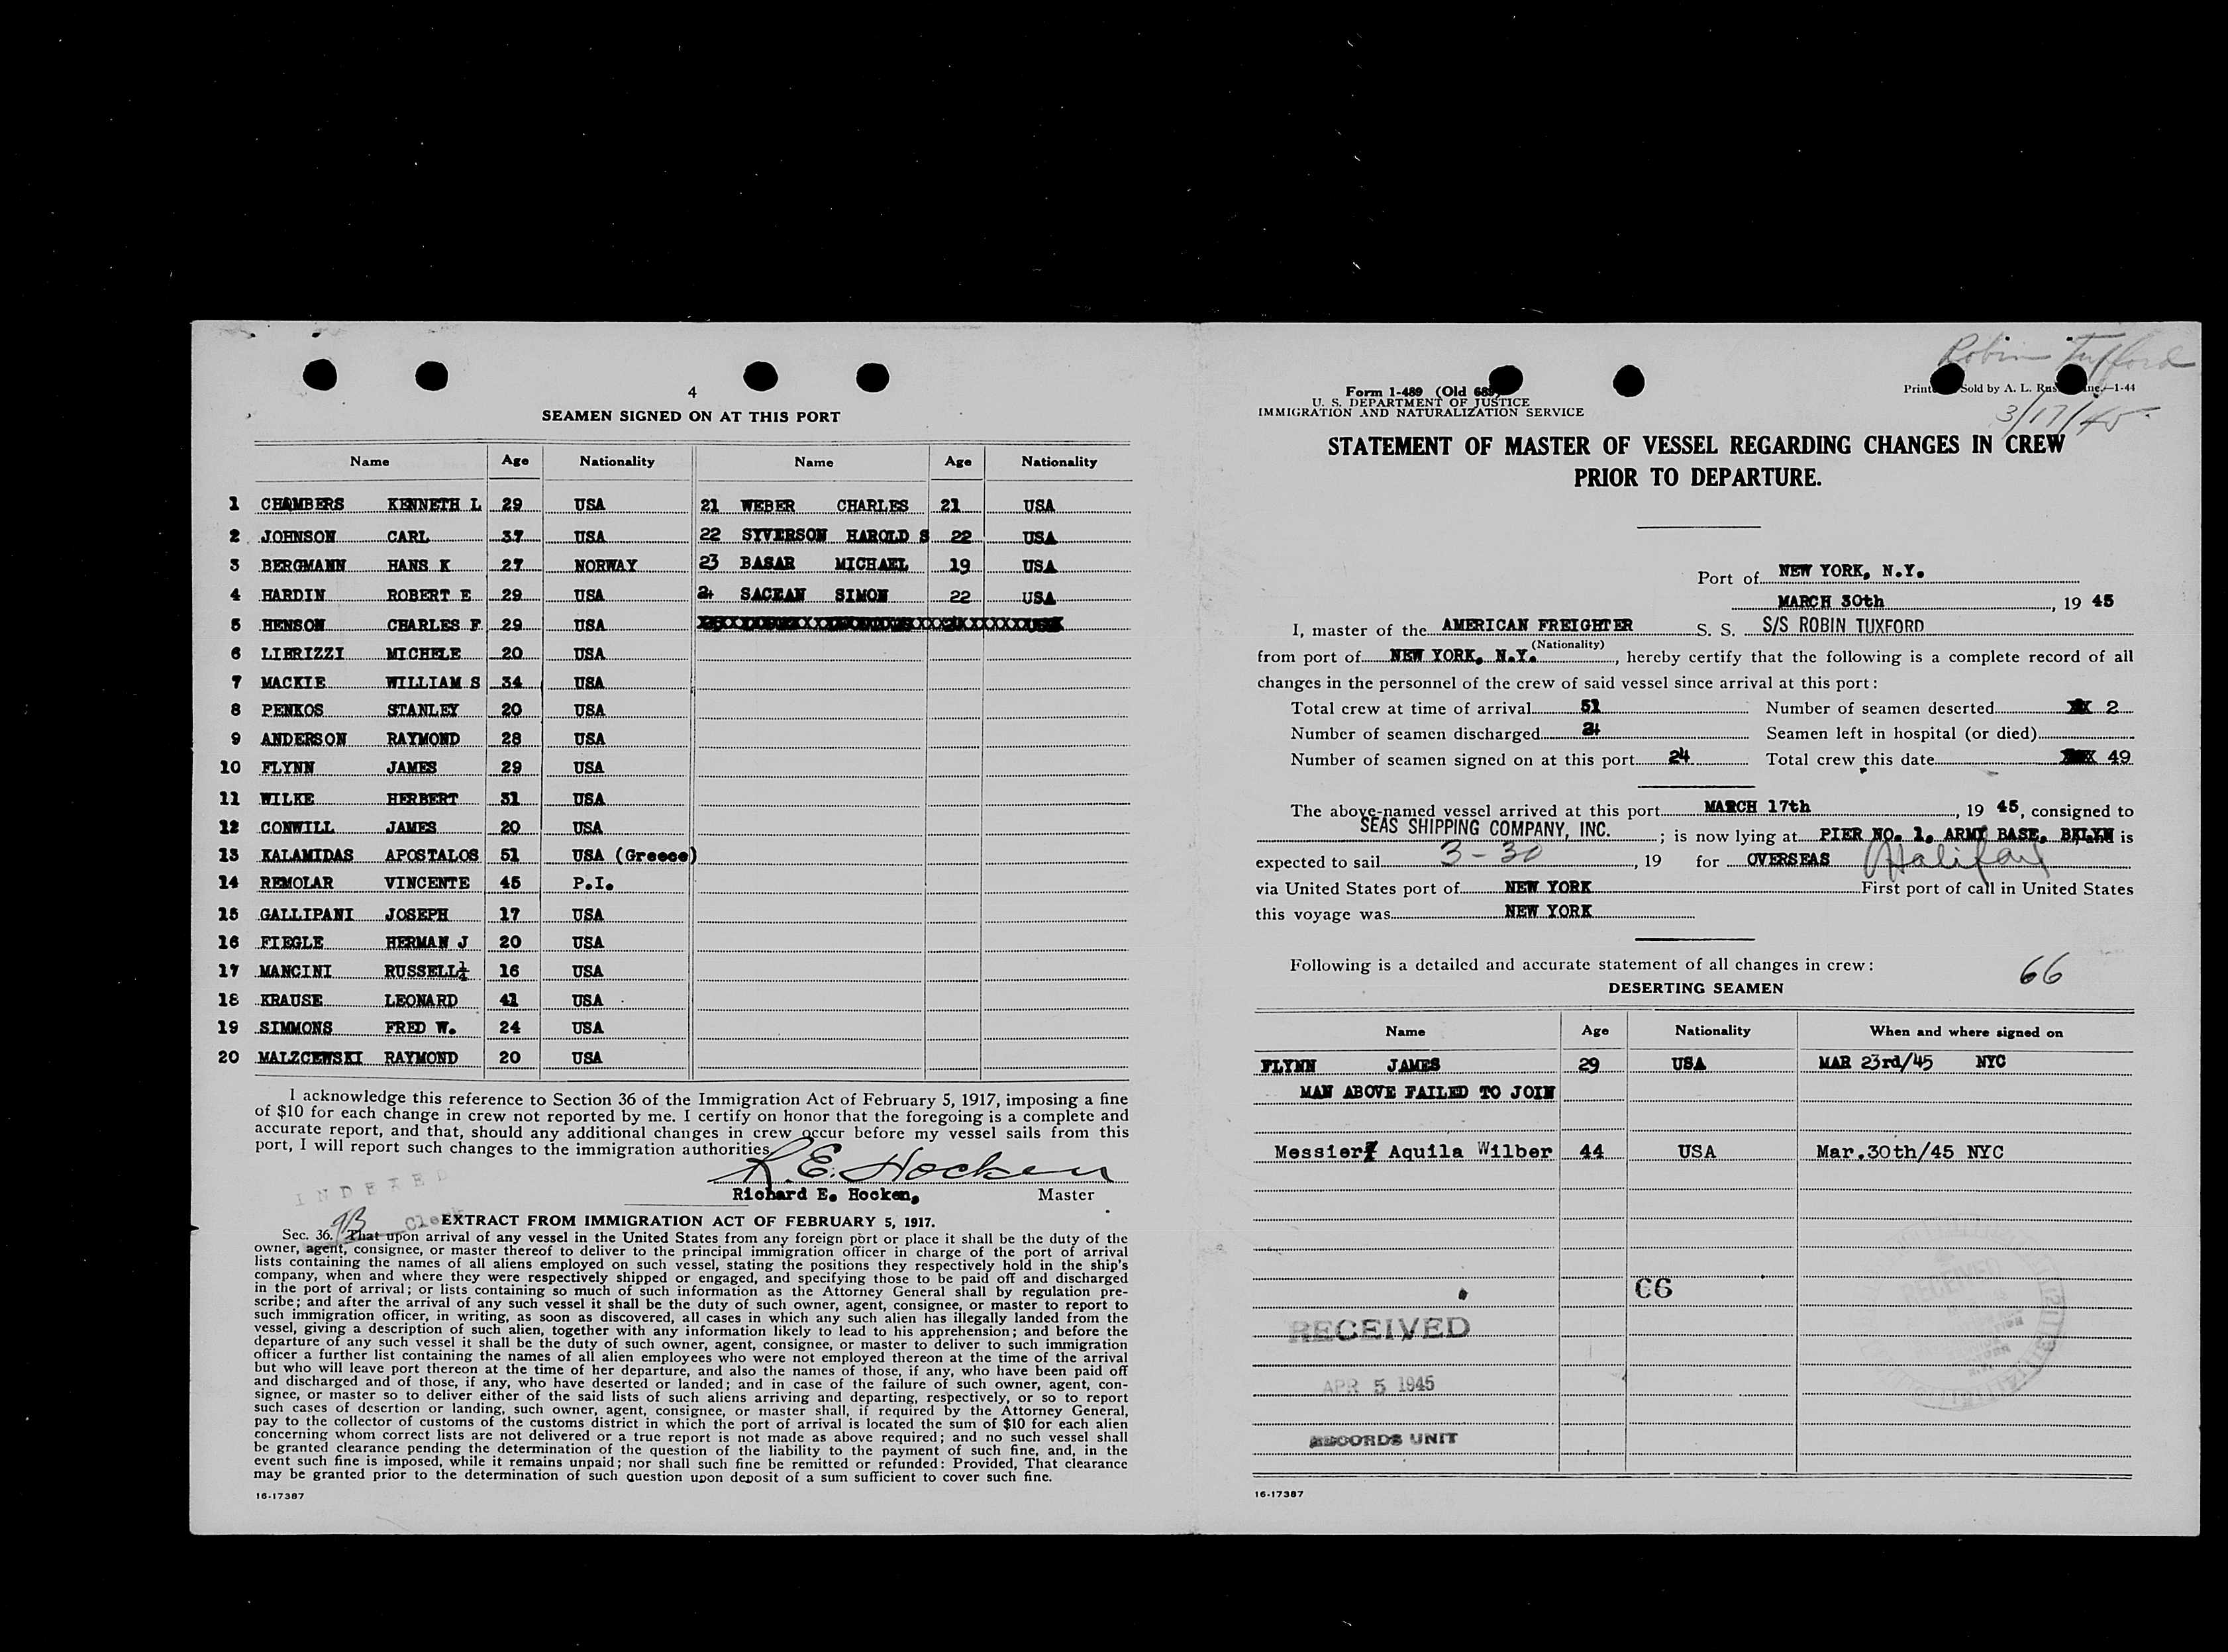 4
SEAMEN SIGNED ON AT THIS PORT
Name Age Nationality Name Age Nationality
1 CHAMBERS KENNETH L 29 USA 21 WEBER CHARLES 21 USA
2 JOHNSON CARL 37 USA 22 SYVERSON HAROLD S 22 USA
3 BERGMANN HANS K 27 NORWAY 23 BASAR MICHAEL 19 USA
4 HARDIN ROBERT E 29 USA 24 SACEAN SIMON 22 USA
5 HENSON CHARLES F 29 USA
6 LIBRIZZI MICHELE 20 USA
7 MACKIE WILLIAM S 34 USA
8 PENKOS STANLEY 20 USA
9 ANDERSON RAYMOND 28 USA
10 FLYNN JAMES 29 USA
11 WILKE HERBERT 31 USA
12 CONWILL JAMES 20 USA
13 KALAMIDAS APOSTALOS 51 USA (Greece)
14 REMOLAR VINCENTE 45 P.I.
15 GALLIPANI JOSEPH 17 USA
16 FIEGLE HERMAN J 20 USA
17 MANCINI RUSSELL 16 USA
18 KRAUSE LEONARD 41 USA
19 SIMMONS FRED W. 24 USA
20 MALZCEWSKI RAYMOND 20 USA
I acknowledge this reference to Section 36 of the Immigration Act of February 5, 1917, imposing a fine
of $10 for each change in crew not reported by me. I certify on honor that the foregoing is a complete and
accurate report, and that, should any additional changes in crew occur before my vessel sails from this
port, I will report such changes to the immigration authorities.
R.E. Hocken
Richard E. Hocken, Master
INDEXED
Clerk
EXTRACT FROM IMMIGRATION ACT OF FEBRUARY 5, 1917.
Sec. 36. That upon arrival of any vessel in the United States from any foreign port or place it shall be the duty of the
owner, agent, consignee, or master thereof to deliver to the principal immigration officer in charge of the port of arrival
lists containing the names of all aliens employed on such vessel, stating the positions they respectively hold in the ship's
company, when and where they were respectively shipped or engaged, and specifying those to be paid off and discharged
in the port of arrival; or lists containing so much of such information as the Attorney General shall by regulation pre-
scribe; and after the arrival of any such vessel it shall be the duty of such owner, agent, consignee, or master to report to
such immigration officer, in writing, as soon as discovered, all cases in which any such alien has illegally landed from the
vessel, giving a description of such alien, together with any information likely to lead to his apprehension; and before the
departure of any such vessel it shall be the duty of such owner, agent, consignee, or master to deliver to such immigration
officer a further list containing the names of all alien employees who were not employed thereon at the time of the arrival
but who will leave port thereon at the time of her departure, and also the names of those, if any, who have been paid off
and discharged and of those, if any, who have deserted or landed; and in case of the failure of such owner, agent, con-
signee, or master so to deliver either of the said lists of such aliens arriving and departing, respectively, or so to report
such cases of desertion or landing, such owner, agent, consignee, or master shall, if required by the Attorney General,
pay to the collector of customs of the customs district in which the port of arrival is located the sum of $10 for each alien
concerning whom correct lists are not delivered or a true report is not made as above required; and no such vessel shall
be granted clearance pending the determination of the question of the liability to the payment of such fine, and, in the
event such fine is imposed, while it remains unpaid; nor shall such fine be remitted or refunded: Provided, That clearance
may be granted prior to the determination of such question upon deposit of a sum sufficient to cover such fine.
16-17387
Robin Tuxford
Form 1-489 (Old 689)
U. S. DEPARTMENT OF JUSTICE
IMMIGRATION AND NATURALIZATION SERVICE
Sold by A. L. 1-44
3/17/45
STATEMENT OF MASTER OF VESSEL REGARDING CHANGES IN CREW
PRIOR TO DEPARTURE.
Port of NEW YORK, N.Y.
MARCH 30th, 19 45
I, master of the AMERICAN FREIGHTER S. S. S/S ROBIN TUXFORD
(Nationality)
from port of NEW YORK, N.Y., hereby certify that the following is a complete record of all
changes in the personnel of the crew of said vessel since arrival at this port:
Total crew at time of arrival 51 Number of seamen deserted 2
Number of seamen discharged 24 Seamen left in hospital (or died)
Number of seamen signed on at this port 24 Total crew this date 49
The above-named vessel arrived at this port MARCH 17th, 19 45, consigned to
SEAS SHIPPING COMPANY, INC.; is now lying at PIER NO. 1. ARMY BASE. BKLYN is
expected to sail 3-30, 19 for OVERSEAS Halifax
via United States port of NEW YORK First port of call in United States
this voyage was NEW YORK
Following is a detailed and accurate statement of all changes in crew: 66
DESERTING SEAMEN
Name Age Nationality When and where signed on
FLYNN JAMES 29 USA MAR 23rd/45 NYC
MAN ABOVE FAILED TO JOIN
Messier Aquila Wilber 44 USA Mar.30th/45 NYC
66
RECEIVED
APR 5 1945
RECORDS UNIT
RECEIVED
16-17387